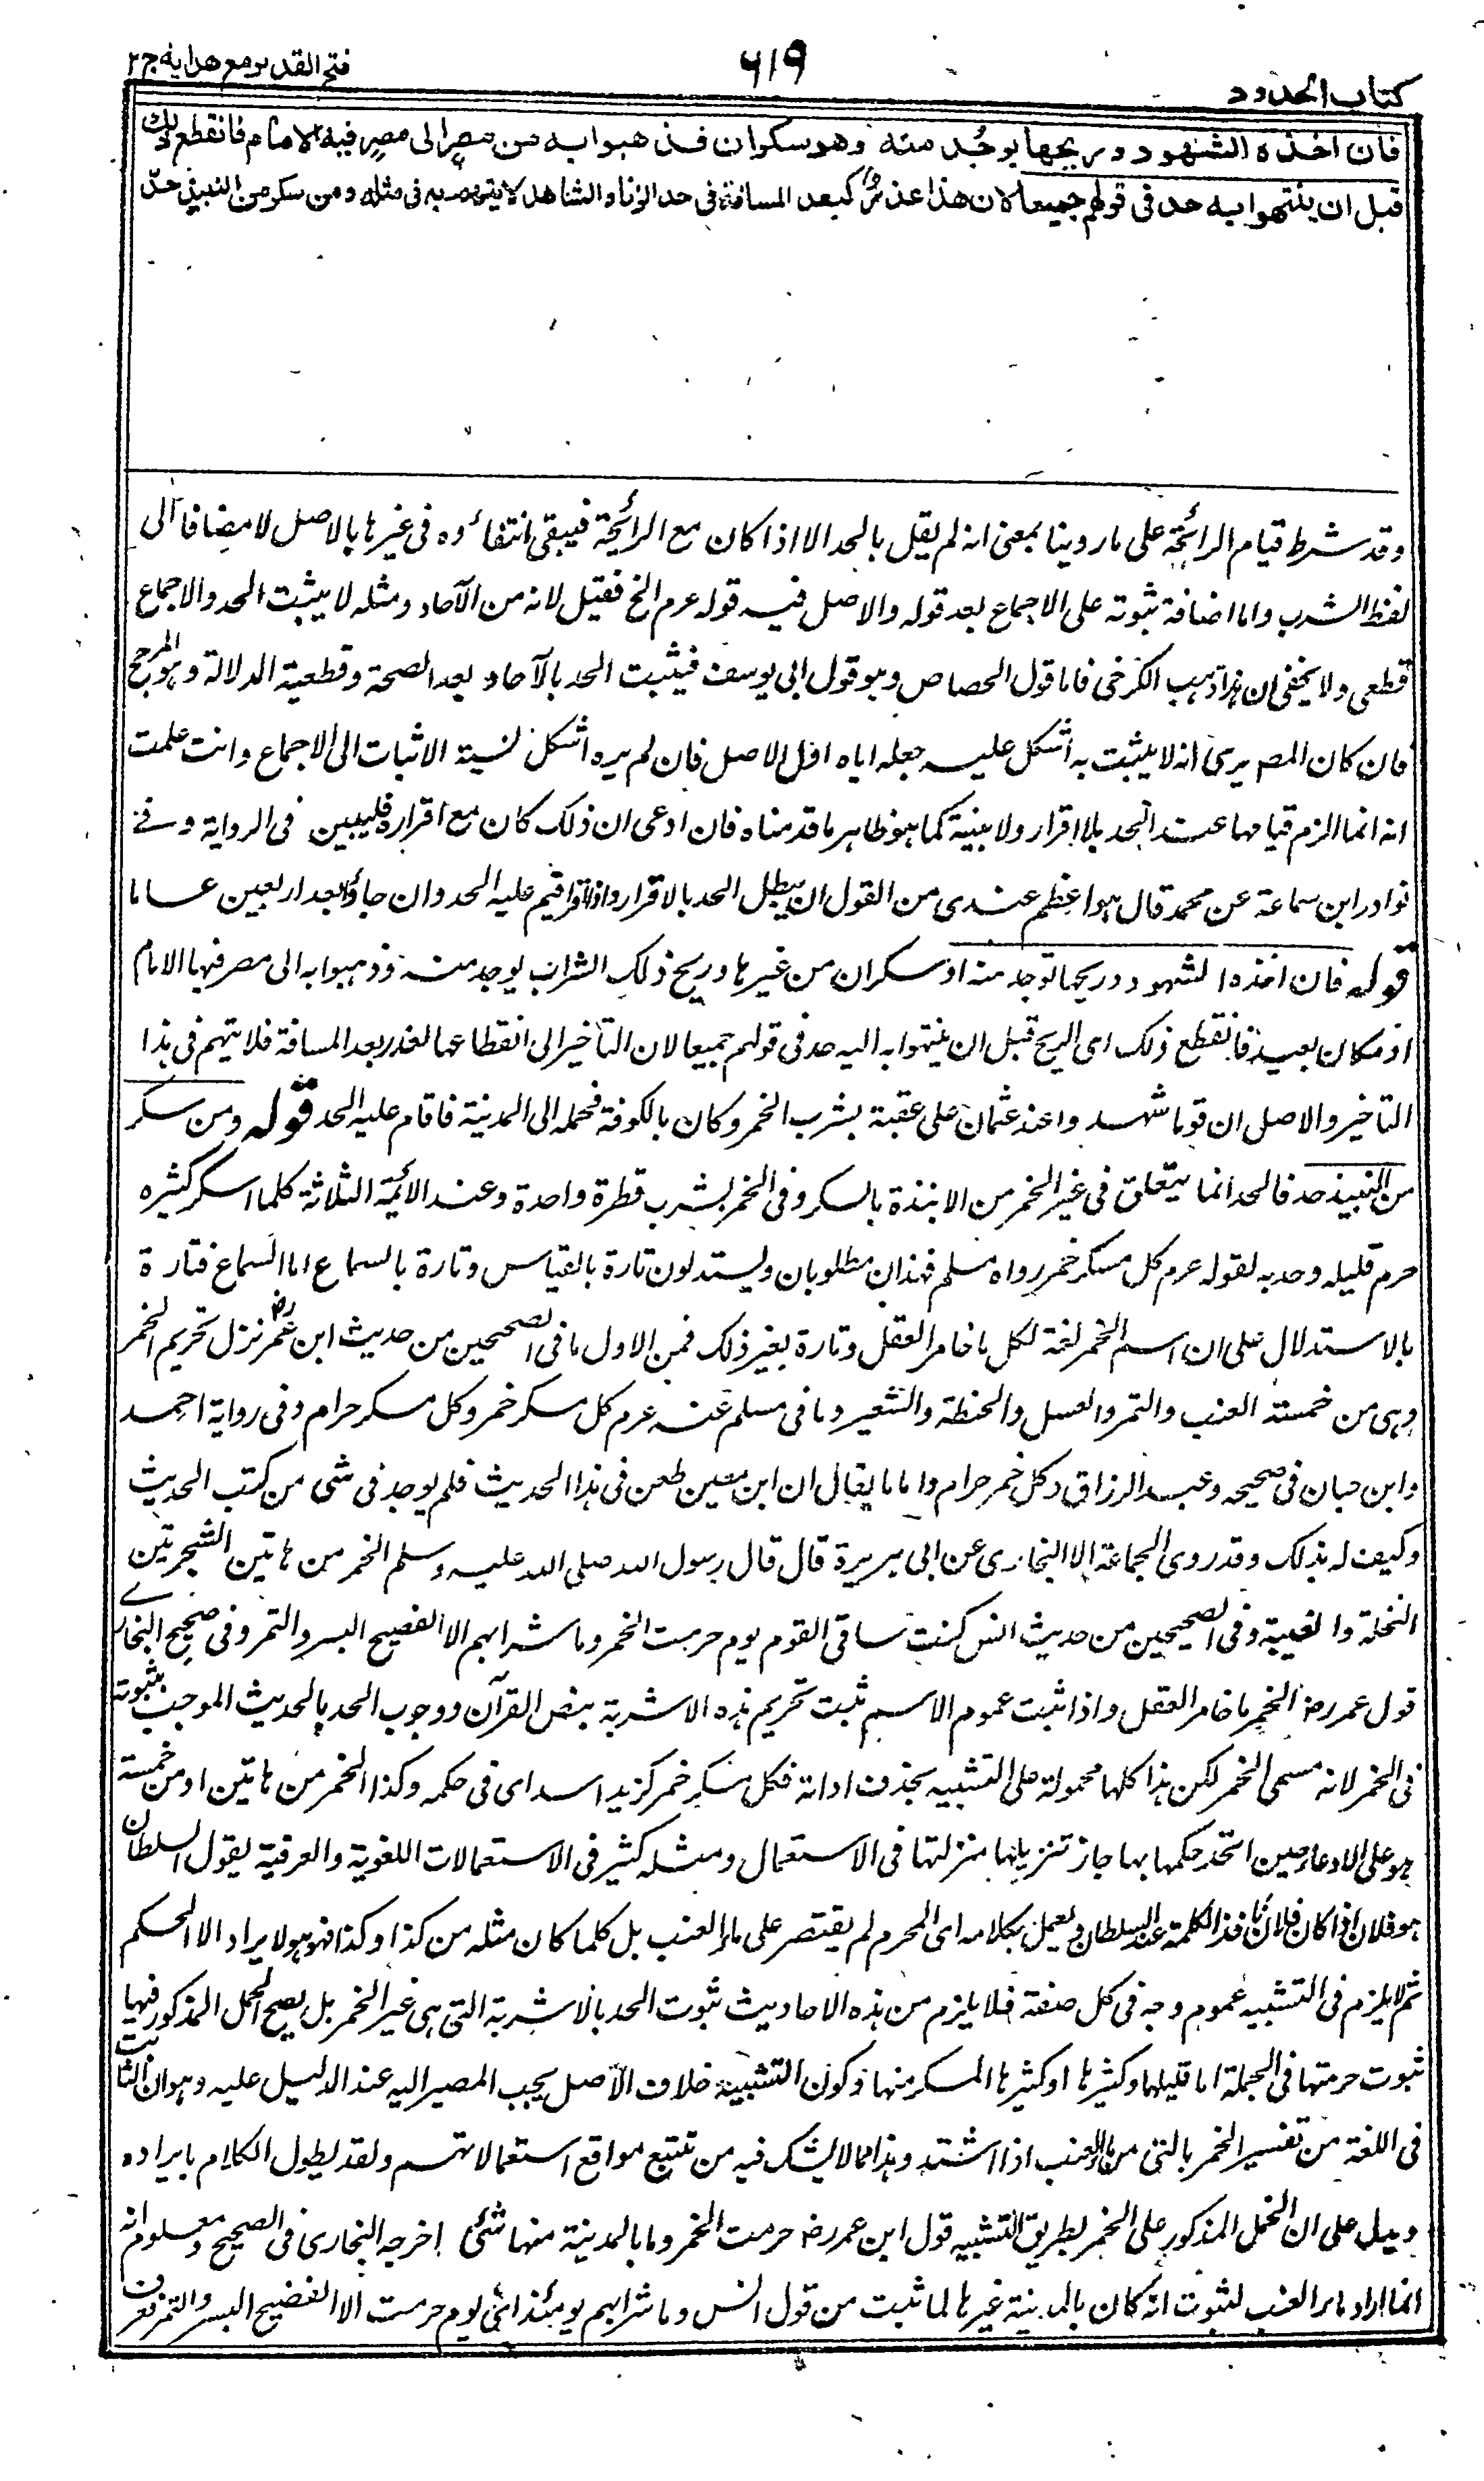 كتاب الحدود
٦١٩
فتح القدير مع هدايه ج٢
فان اخذه الشهود وريحها يوجد منه وهو سكران فذهبوا به من مصر الى مصر فيه الامام فانقطع ذلك
قبل ان ينتهوا به حد فى قولهم جميعا لان هذا عذر كبعد المسافة فى حد الزنا والشاهد لا يتهم به فى مثله ومن سكر من النبيذ حد
وقد شرط قيام الرائحة على ما روينا بمعنى انه لم يقل بالحد الا اذا كان مع الرائحة فيبقى انتفاؤه فى غيرها بالاصل لا مضافا الى
لفظ الشرب واما اضافة ثبوته على الاجماع بعد قوله والاصل فيه قوله عم الخ فقيل لانه من الآحاد ومثله لا يثبت الحد والاجماع
قطعى ولا يخفى ان هذا مذهب الكرخى فاما قول الجصاص وهو قول ابى يوسف فيثبت الحد بالآحاد بعد الصحة وقطعية الدلالة وهو المرجح
فان كان المصـ يرى انه لا يثبت به اشكل عليه جعله اياه اول الاصل فان لم يره اشكل نسبة الاثبات الى الاجماع وانت علمت
انه انما الزم قيامها عند الحد بلا اقرار ولا بينة كما هو ظاهر ما قدمناه فان ادعى ان ذلك كان مع اقراره فليبين فى الرواية وفى
نوادر ابن سماعة عن محمد قال هو اعظم عندى من القول ان يبطل الحد بالاقرار وانا اقيم عليه الحد وان جاء بعد اربعين عاما
قوله فان اخذه الشهود وريحها توجد منه او سكران من غيرها وريح ذلك الشراب يوجد منه وذهبوا به الى مصر فيها الامام
او مكان بعيد فانقطع ذلك اى الريح قبل ان ينتهوا به اليه حد فى قولهم جميعا لان التأخير الى انقطاعها لعذر بعد المسافة فلا يتهم فى هذا
التأخير والاصل ان قوما شهدوا عند عثمان على عقبة بشرب الخمر وكان بالكوفة فحمله الى المدينة فاقام عليه الحد قوله ومن سكر
من النبيذ حد فالحد انما يتعلق فى غير الخمر من الانبذة بالسكر وفى الخمر بشرب قطرة واحدة وعند الائمة الثلاثة كلما اسكر كثيره
حرم قليله وحد به لقوله عم كل مسكر خمر رواه مسلم فهذان مطلوبان ويستدلون تارة بالقياس وتارة بالسماع اما السماع فتارة
بالاستدلال على ان اسم الخمر لغة لكل ما خامر العقل وتارة بغير ذلك فمن الاول ما فى الصحيحين من حديث ابن عمر رض نزل تحريم الخمر
وهى من خمسة العنب والتمر والعسل والحنطة والشعير وما فى مسلم عنه عم كل مسكر خمر وكل مسكر حرام وفى رواية احمد
وابن حبان فى صحيحه وعبد الرزاق وكل خمر حرام واما ما يقال ان ابن معين طعن فى هذا الحديث فلم يوجد فى شئ من كتب الحديث
وكيف له بذلك وقد روى الجماعة الا البخارى عن ابى هريرة قال قال رسول الله صلى الله عليه وسلم الخمر من هاتين الشجرتين
النخلة والعنبة وفى الصحيحين من حديث انس كنت ساقى القوم يوم حرمت الخمر وما شرابهم الا الفضيخ البسر والتمر وفى صحيح البخارى
قول عمر رض الخمر ما خامر العقل واذا ثبت عموم الاسم ثبت تحريم هذه الاشربة بنص القرآن ووجوب الحد بالحديث الموجب بثبوته
فى الخمر لانه مسمى الخمر لكن هذا كلها محمولة على التشبيه بحذف اداته فكل مسكر خمر كزيد اسد اى فى حكمه وكذا الخمر من هاتين او من خمسة
هو على الادعاء حين اتحد حكمها بها جاز تنزيلها منزلتها فى الاستعمال ومثله كثير فى الاستعمالات اللغوية والعرفية يقول السلطان
هو فلان اذا كان فلان نافذ الكلمة عند السلطان ويعمل بكلامه اى المحرم لم يقتصر على ماء العنب بل كلما كان مثله من كذا وكذا فهو هو ولا يراد الا الحكم
ثم لا يلزم فى التشبيه عموم وجه فى كل صفة فلا يلزم من هذه الاحاديث ثبوت الحد بالاشربة التى هى غير الخمر بل يصح الحمل المذكور فيها
ثبوت حرمتها فى الجملة اما قليلها وكثيرها او كثيرها المسكر منها وكون التشبيه خلاف الاصل يجب المصير اليه عند الدليل عليه وهو ان الثابت
فى اللغة من تفسير الخمر بالنئ من ماء العنب اذا اشتد وهذا مما لا يشك فيه من تتبع مواقع استعمالاتهم ولقد يطول الكلام بايراده
ويدل على ان الحمل المذكور على الخمر بطريق التشبيه قول ابن عمر رض حرمت الخمر وما بالمدينة منها شئ اخرجه البخارى فى الصحيح ومعلوم انه
انما اراد ماء العنب لثبوت انه كان بالمدينة غيرها لما ثبت من قول انس وما شرابهم يومئذ اى يوم حرمت الا الفضيخ البسر والتمر فعرف